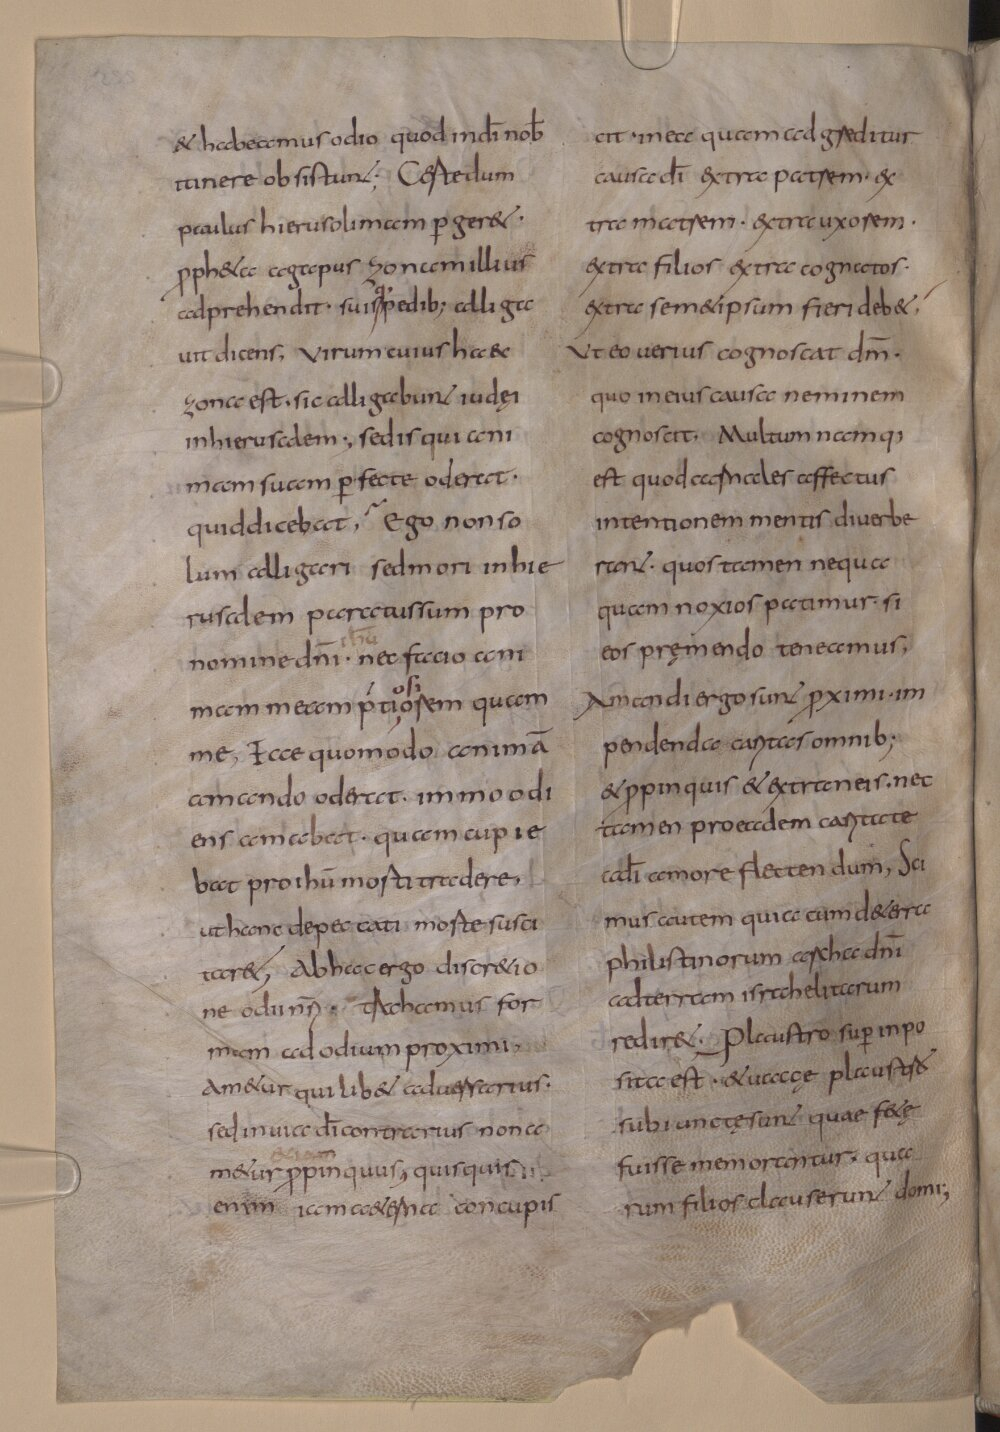 & habeamus odio quod indī nob̄
itinere obsistunt; Certe dum
paulus hierusolimam ꝑger&.
ꝓph&a agapus zonam illius
adprehendit. suisq; pedib; alliga
uit dicens, Virum cuius haec
zona est. sic alligabunt iudęi
inhierusalem., sed is qui ani
mam suam ꝑfecte oderat.
quid dicebat, Ego non so
lum alligari sed mori in hie
rusalem paratus sum pro
nomine dn̄i ihū. nec facio ani
mam meam p̄tiosiorem quam
me, Ecce quomodo animā
amando oderat. immo odi
ens amabat. quam cupie
bat pro ihū morti tradere,
ut hanc de peccati morte susci
tar&, Ab hac ergo discr&io
ne odii nr̄i. trahamus for
mam ad odium proximi,
Am&ur quilib& aduersarius.
sed in uia dī contrarius non a
m&ur etiam ꝓpinquus, quisquis
enim iam a&erna concupis
cit. in ea quam adgreditur
causa dī extra patrem. ex
tra matrem. extra uxorem.
extra filios extra cognatos.
extra sem&ipsum fieri deb&,
Ut eo uerius cognoscat dm̄.
quo in eius causa neminem
cognoscit. Multum nam q;
est quod carnales affectus
intentionem mentis diuerbe
rant. quos tamen nequa
quam noxios patimur. si
eos pręmendo teneamus,
Amandi ergo sunt ꝓximi. im
pendenda caritas omnib;
& ꝓpinquis & extraneis. nec
tamen pro eadem caritate
a dī amore flectendum, Sci
mus autem quia cum de terra
philistinorum archa dn̄i
ad terram israhelitarum
redir&. Plaustro suꝑ inpo
sita est. & uaccę plaustro
subiunctę sunt quae fetę
fuisse memorantur. qua
rum filios clauserunt domi;